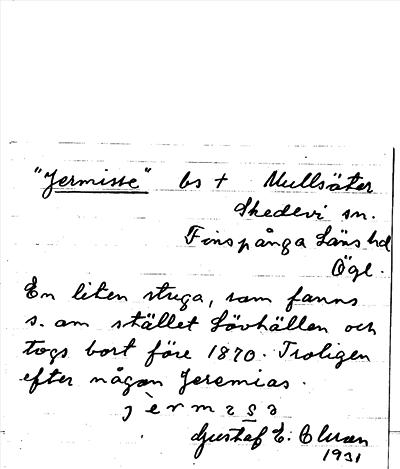 "Jermisse" bs + Mullsäter
Skedevi sn.
Finspånga Läns hd
Ögl.
En liten stuga, som fanns
s. om stället Lövhällen och
togs bort före 1870. Troligen
efter någon Jeremias.
Gustaf E:
1931